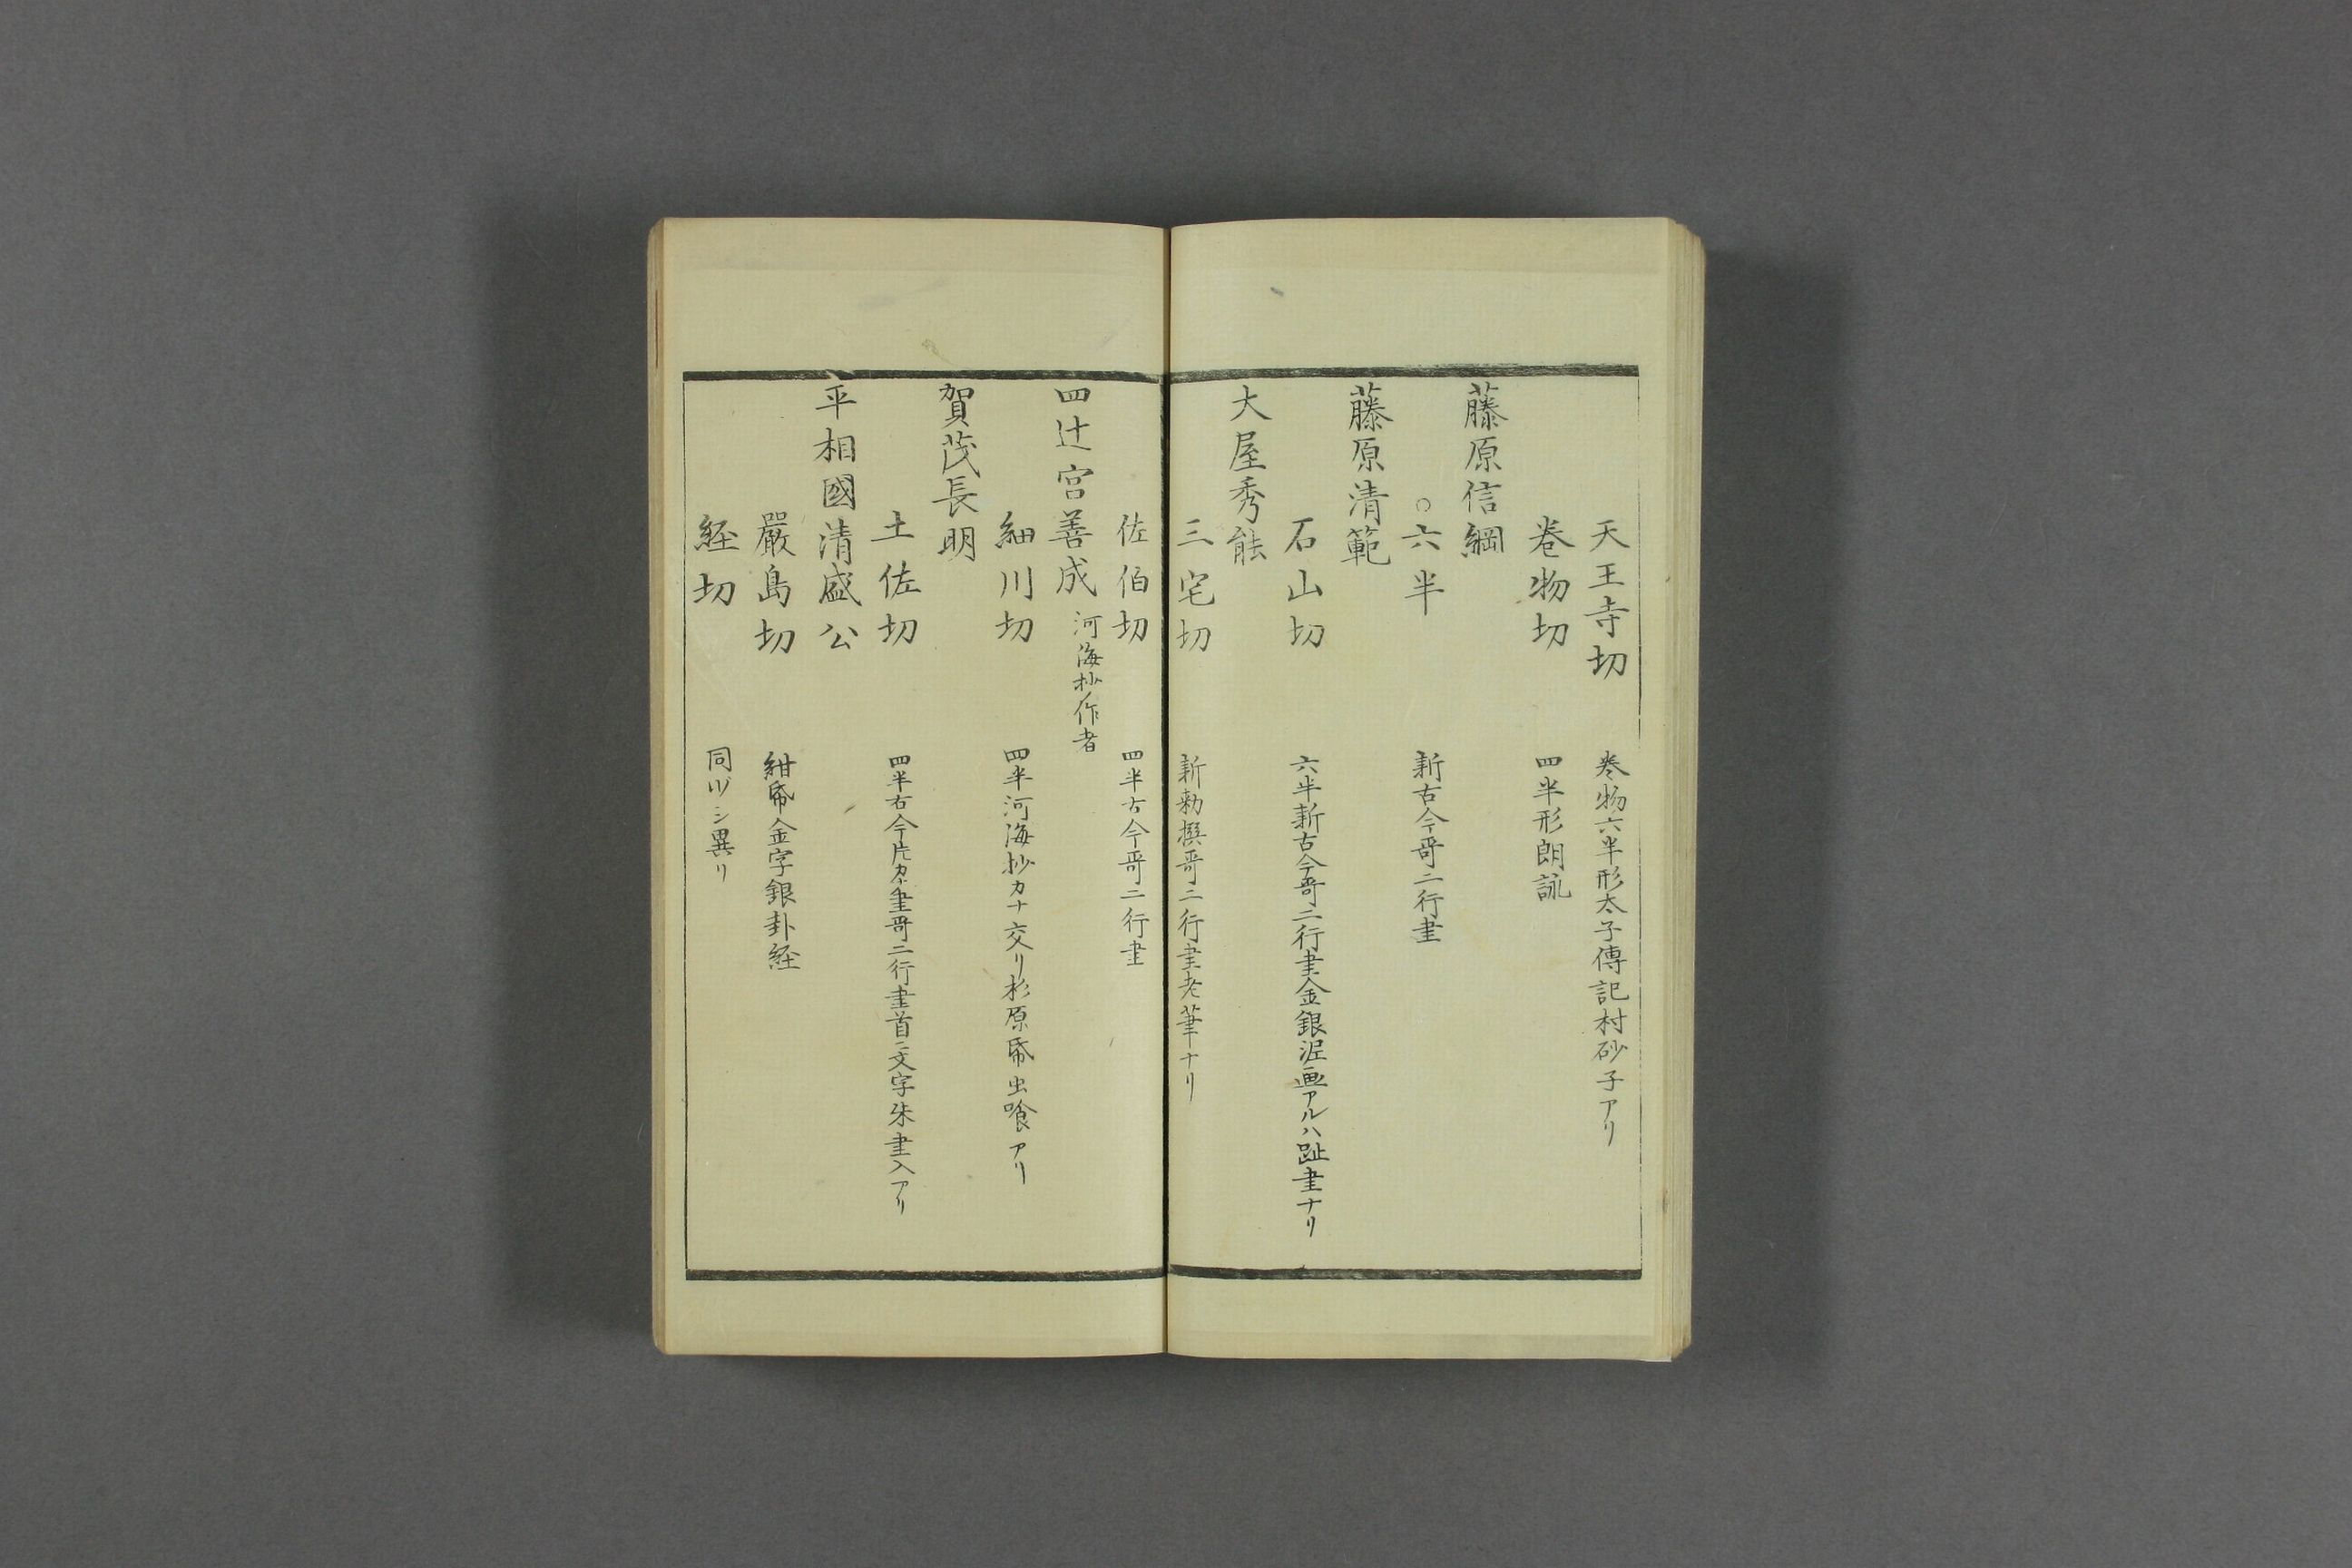 天王寺切 巻物六半形太子傳記村砂子アリ
巻物切 四半形朗詠
藤原信綱
○六半 新古今哥二行書
藤原清範
石山切 六半新古今哥二行書金銀泥画アルハ趾書ナリ
大屋秀能
三宅切 新勅撰哥二行書老筆ナリ
佐伯切 四半古今哥二行書
四辻宮善成 河海抄作者
細川切 四半河海抄カナ交リ杉原帋虫喰アリ
賀茂長明
土佐切 四半古今片カナ書哥二行書首ニ文字朱書入アリ
平相國清盛公
嚴島切 紺帋金字銀卦経
経切 同